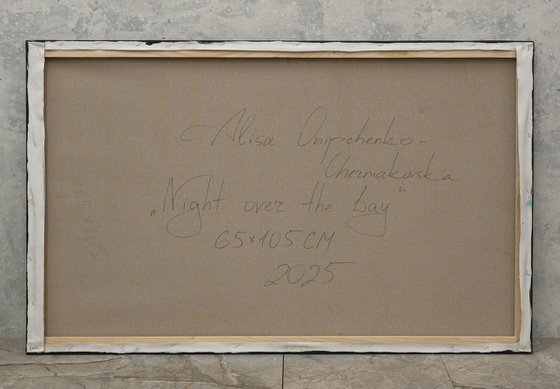 Alisa Onipchenko-
Cherniakovska
„Night over the bay"
65x105 CM
2025